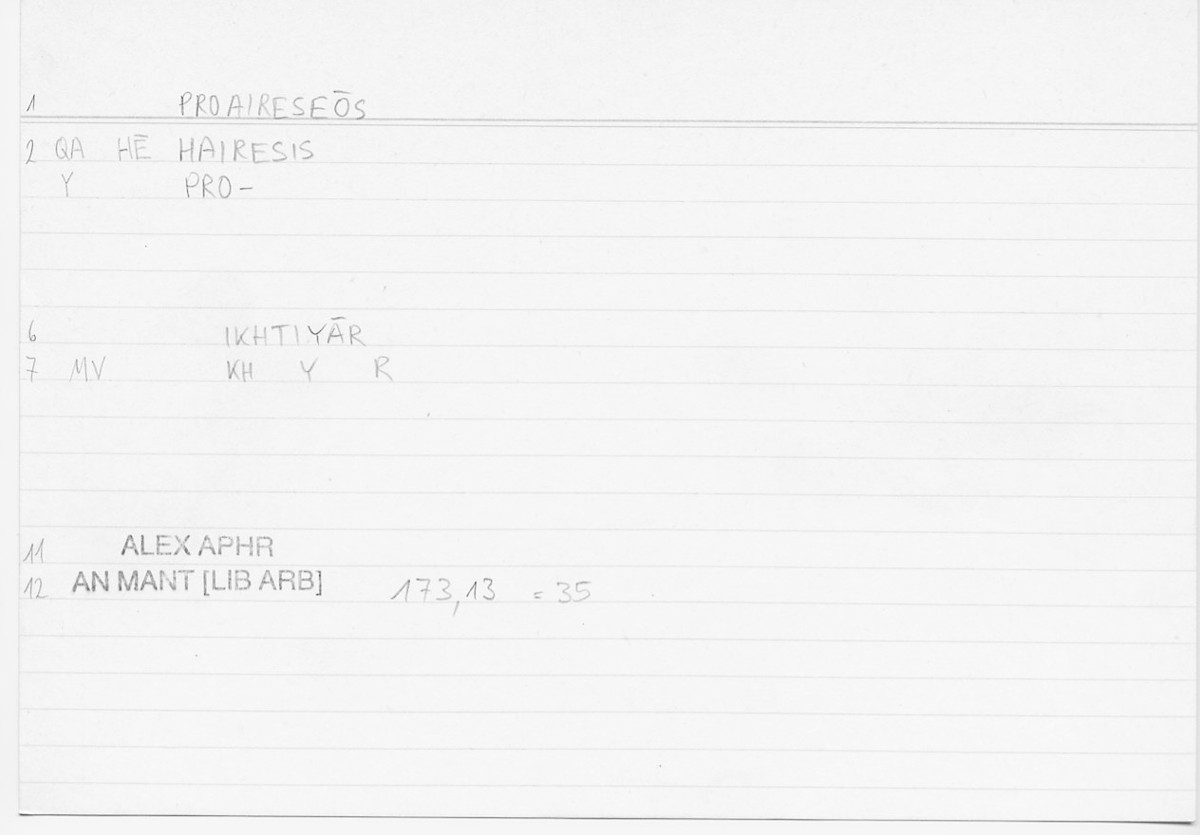 1 PROAIRESEŌS
2 QA HĒ HAIRESIS
Y PRO-
6 IKHTIYĀR
7 MV KH Y R
11 ALEX APHR
12 AN MANT [LIB ARB] 173,13 = 35